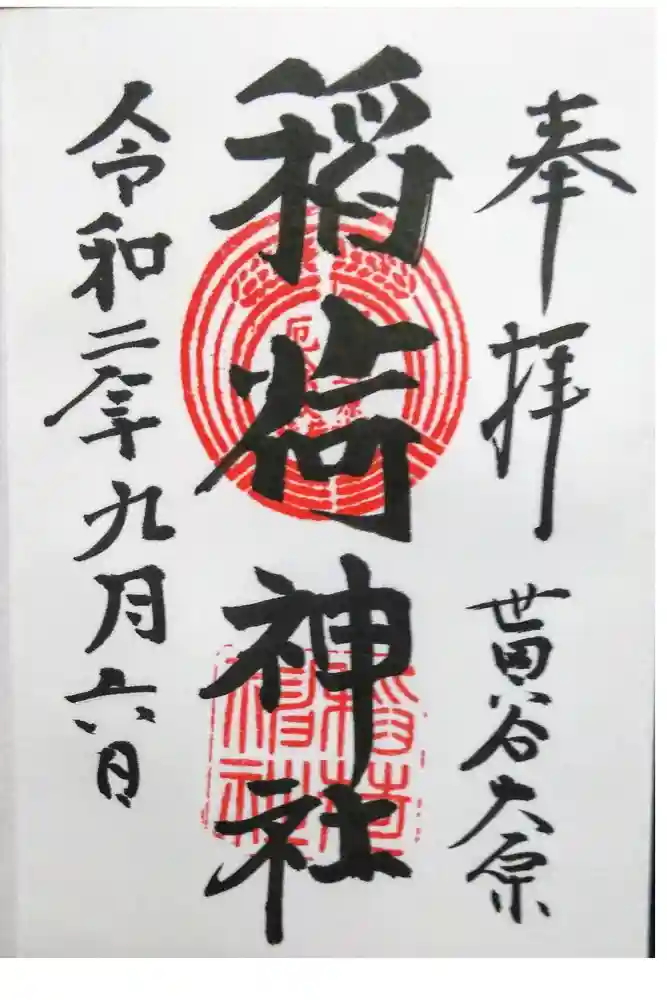 奉拝
黄谷大原
稲荷神社
令和二年九月六日